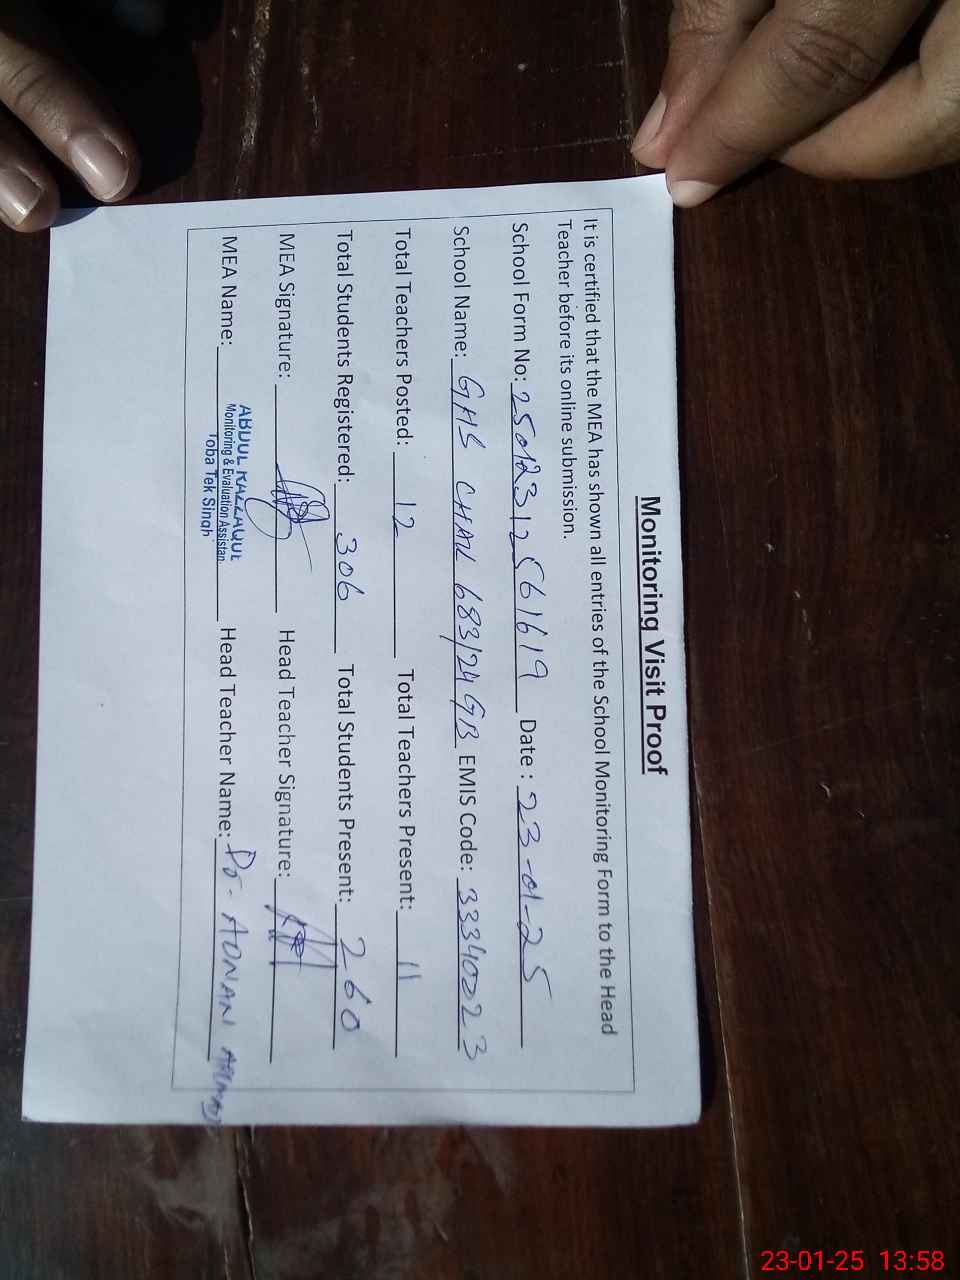 Monitoring Visit Proof
It is certified that the MEA has shown all entries of the School Monitoring Form to the Head
Teacher before its online submission.
School Form No: 25012312561619 Date : 23-01-25
School Name: GHS CHAK 683/24 GB EMIS Code: 33340023
Total Teachers Posted: 12 Total Teachers Present: 11
Total Students Registered: 306 Total Students Present: 260
MEA Signature: Head Teacher Signature:
MEA Name: ABDUL RAZZAQUE Head Teacher Name: Dr. ADNAN AHMAD
Monitoring & Evaluation Assistan
Toba Tek Singh
23-01-25 13:58